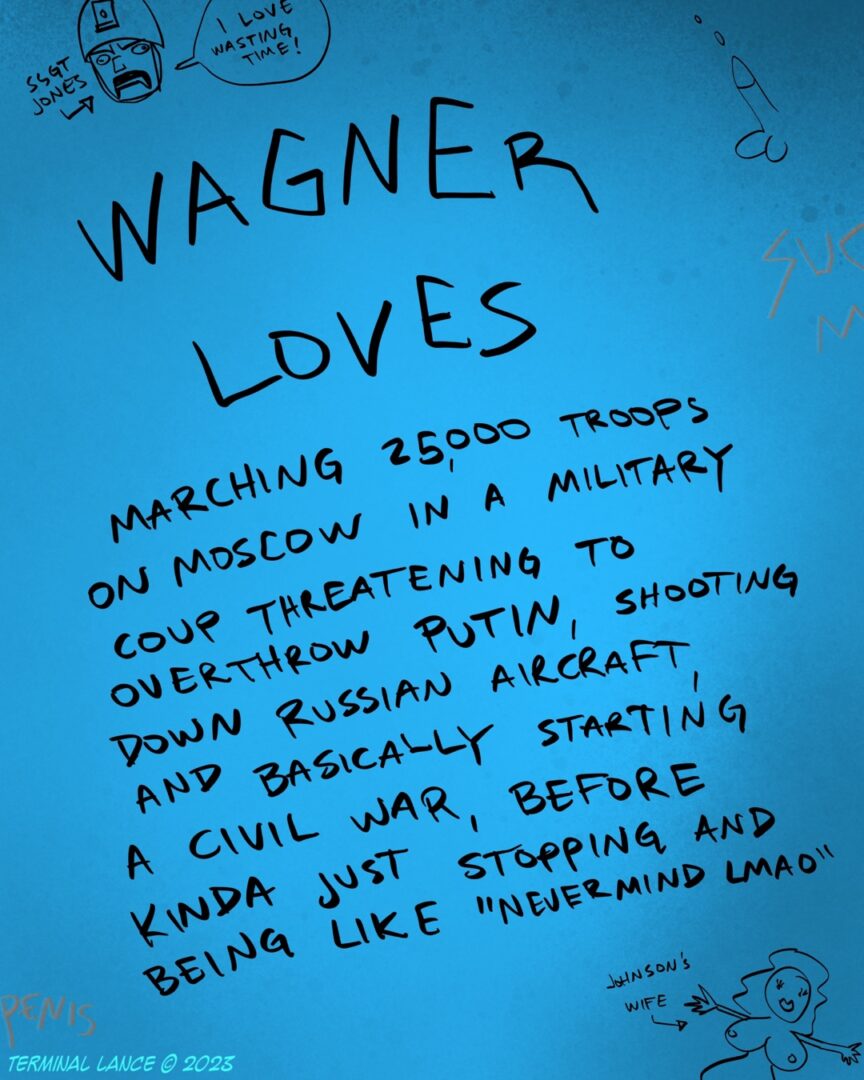 I LOVE
WASTING
TIME!
SSGT
JONES
WAGNER
LOVES
MARCHING 25,000 TROOPS
ON MOSCOW IN A MILITARY
COUP THREATENING TO
OVERTHROW PUTIN, SHOOTING
DOWN RUSSIAN AIRCRAFT,
AND BASICALLY STARTING
A CIVIL WAR, BEFORE
KINDA JUST STOPPING AND
BEING LIKE "NEVERMIND LMAO"
JOHNSON'S
WIFE
PENIS
TERMINAL LANCE © 2023